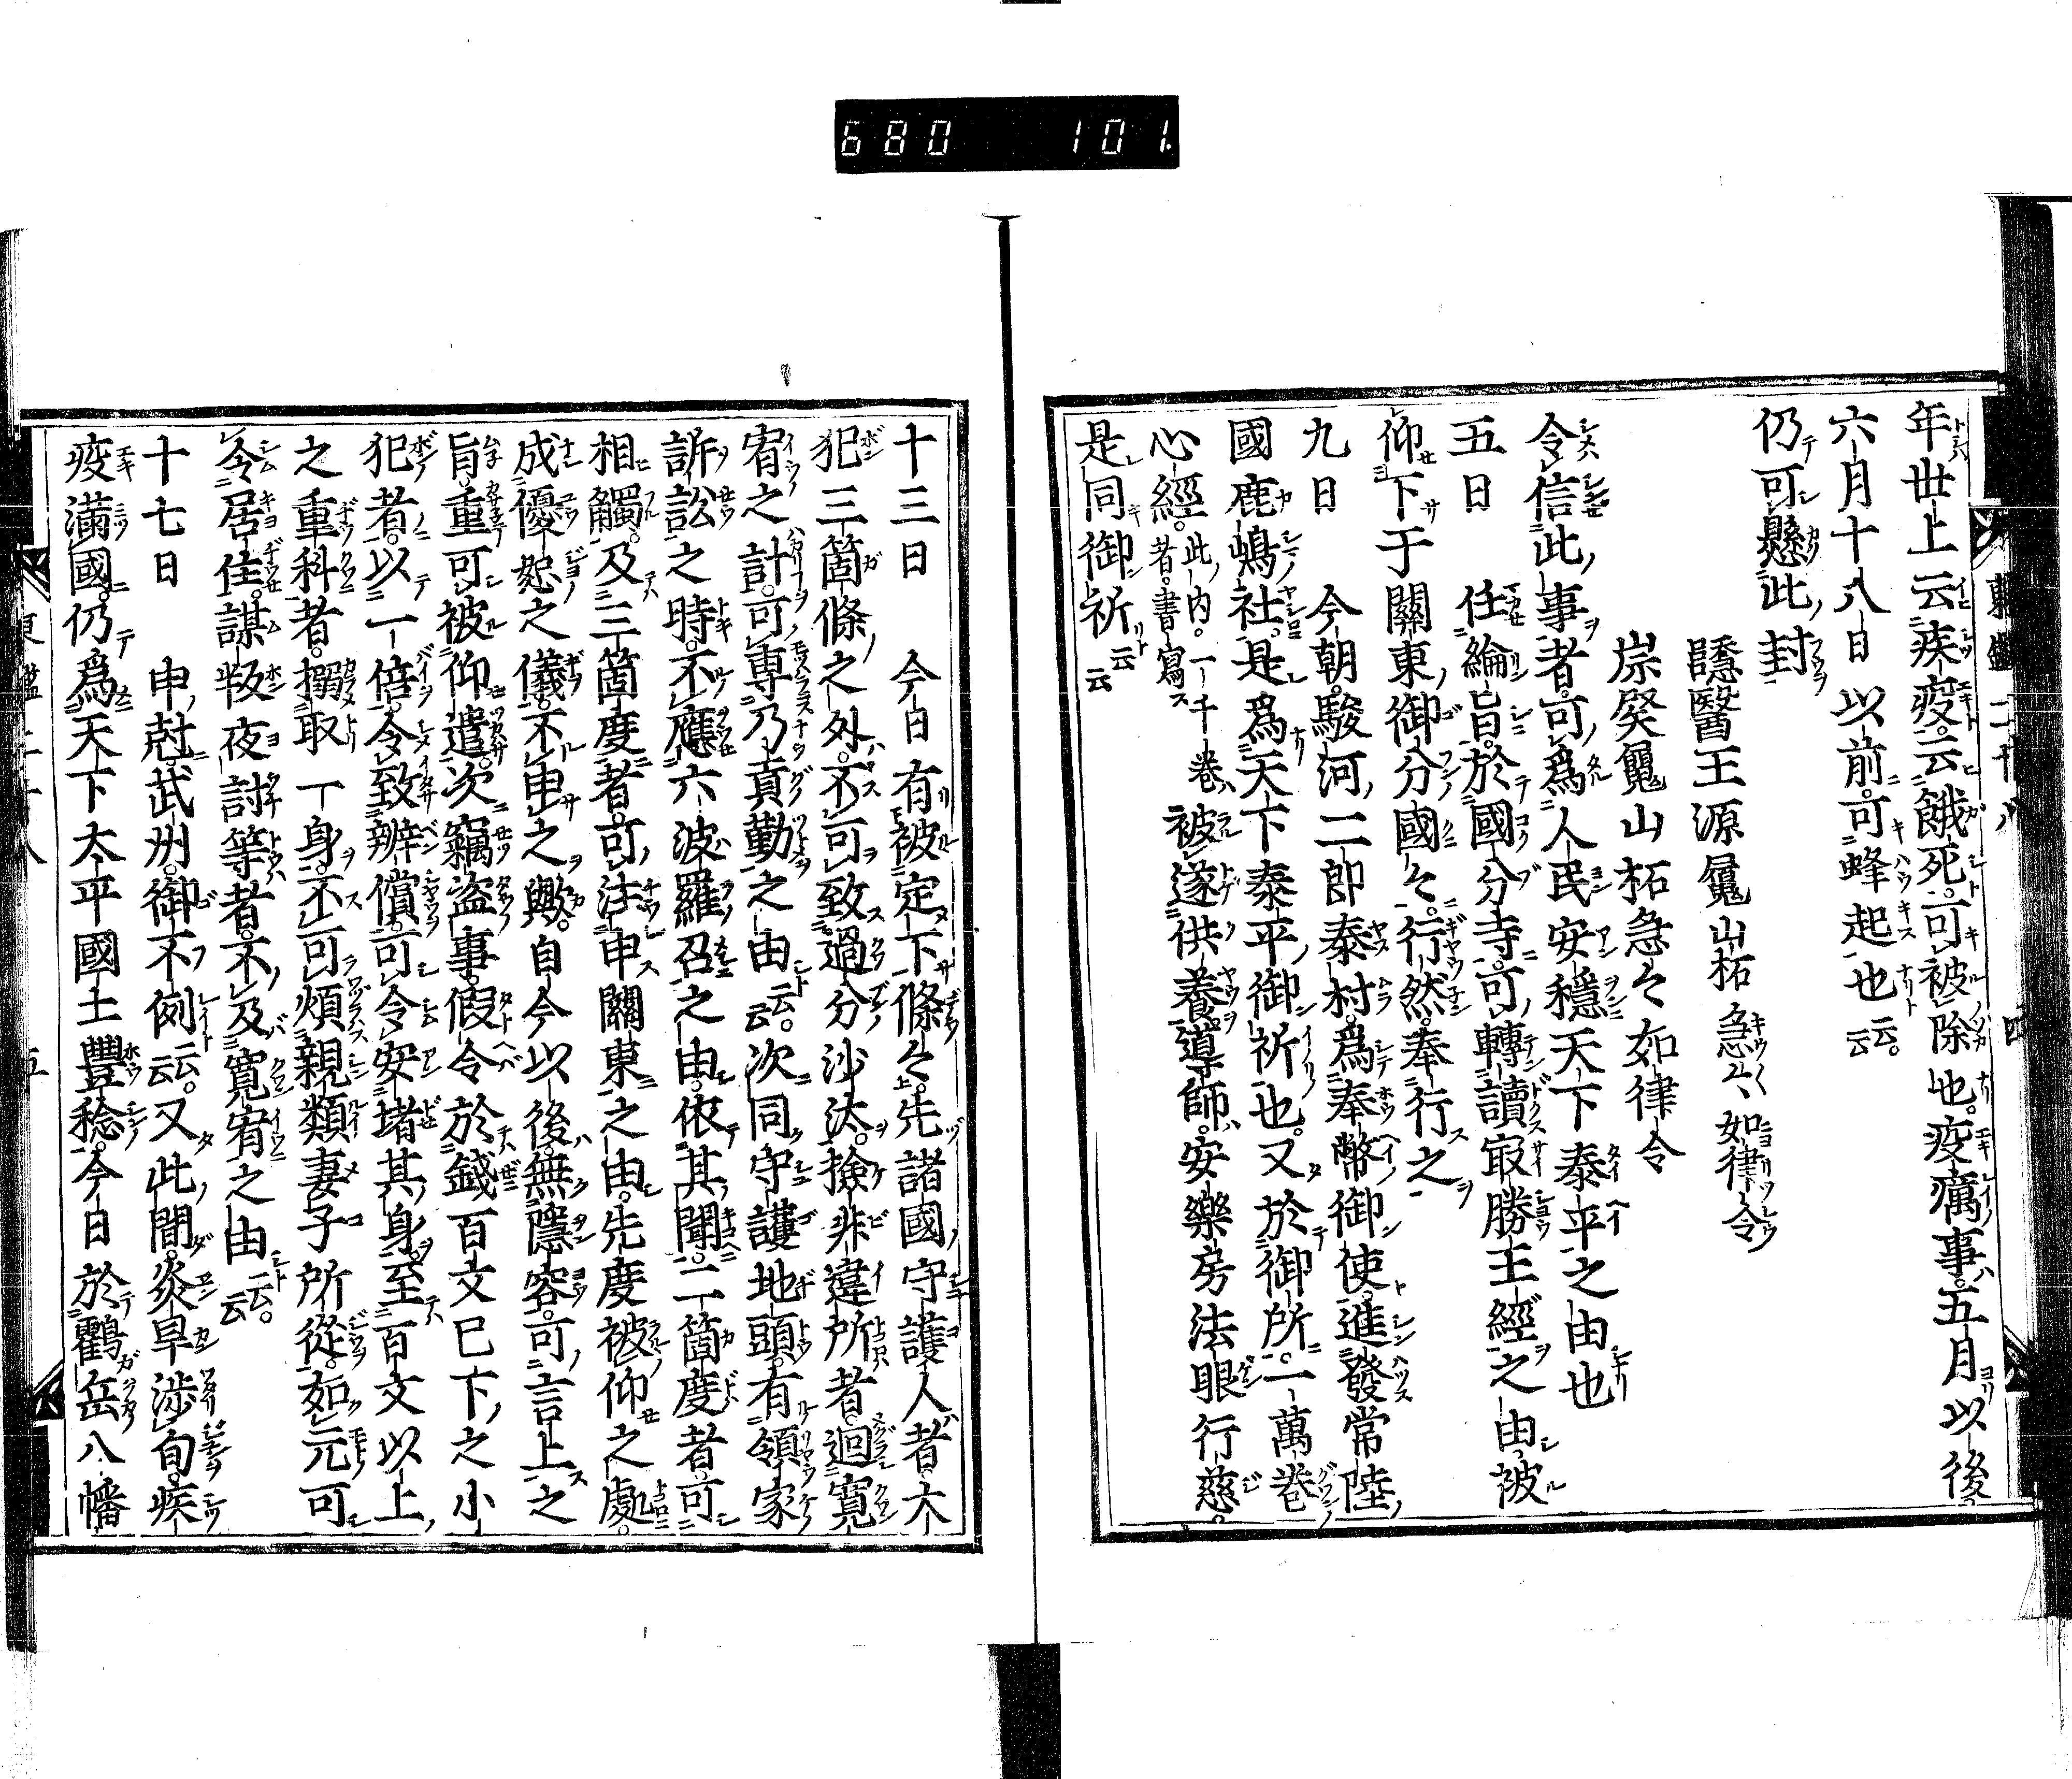 680 101
年世上云疾疫云餓死可被除也疫癘事五月以後
六月十八日以前可蜂起也云云
仍可懸此封
隱醫王源鬼山柘急々如律令
山柘急々如律令
令信此事者可爲人民安穩天下泰平之由也
五日 任綸旨於國分寺可轉讀最勝王經之由被
仰下于關東御分國々行然奉行之
九日 今朝駿河二郎泰村爲奉幣御使進發常陸
國鹿嶋社是爲天下泰平御祈也又於御所一萬卷
心經此内一千卷者書寫被遂供養導師安樂房法眼行慈
是同御祈云云
東鑑二十八 四
十三日 今日有被定下條々先諸國守護人者大
犯三箇條之外不可致過分沙汰撿非違所者迴寛
宥之計可專乃貢勤之由云云次同守護地頭有領家
訴訟之時不應六波羅召之由依其聞二箇度者可
相觸及三箇度者可注申關東之由先度被仰之處
成優恕之儀不申之歟自今以後無隱容可言上之
旨重可被仰遣次竊盜事假令於錢百文已下之小
犯者以一倍令致辨償可令安堵其身至百文以上
之重科者搦取一身不可煩親類妻子所從如元可
令居住謀叛夜討等者不及寛宥之由云云
十七日 申尅武州御不例云云又此間炎旱渉旬疾
疫滿國仍爲天下太平國土豐稔今日於鶴岳八幡
東鑑二十八 五